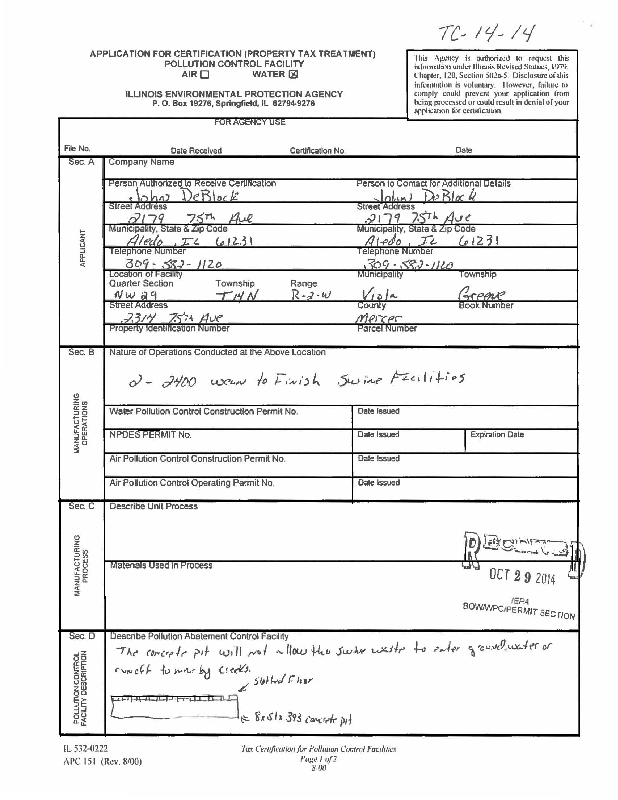 TC-14-14
APPLICATION FOR CERTIFICATION (PROPERTY TAX TREATMENT)
POLLUTION CONTROL FACILITY
AIR ☐ WATER ☒
ILLINOIS ENVIRONMENTAL PROTECTION AGENCY
P. O. Box 19276, Springfield, IL 62794-9276
This Agency is authorized to request this
information under Illinois Revised Statues, 1979,
Chapter, 120, Section 502a-5. Disclosure of this
information is voluntary. However, failure to
comply could prevent your application from
being processed or could result in denial of your
application for certification.
FOR AGENCY USE
File No. Date Received Certification No. Date
Sec. A Company Name
Person Authorized to Receive Certification Person to Contact for Additional Details
John DeBlock John DeBlock
Street Address Street Address
2179 75th Ave 2179 75th Ave
Municipality, State & Zip Code Municipality, State & Zip Code
Aledo, IL 61231 Aledo, IL 61231
Telephone Number Telephone Number
309-582-1120 309-582-1120
Location of Facility Municipality Township
Quarter Section Township Range
NW 29 T14N R-2-W Viola Greene
Street Address County Book Number
2314 75th Ave Mercer
Property Identification Number Parcel Number
APPLICANT
Sec. B Nature of Operations Conducted at the Above Location
2 - 2400 wean to Finish Swine Facilities
Water Pollution Control Construction Permit No. Date Issued
NPDES PERMIT No. Date Issued Expiration Date
Air Pollution Control Construction Permit No. Date Issued
Air Pollution Control Operating Permit No. Date Issued
MANUFACTURING
OPERATIONS
Sec. C Describe Unit Process
Materials Used in Process
MANUFACTURING
PROCESS
RECEIVED
OCT 29 2014
IEPA
BOW/WPC/PERMIT SECTION
Sec. D Describe Pollution Abatement Control Facility
The concrete pit will not allow the swine waste to enter groundwater or
runoff to near by creeks.
slotted floor
8x51x393 concrete pit
POLLUTION CONTROL
FACILITY DESCRIPTION
IL 532-0222 Tax Certification for Pollution Control Facilities
APC 151 (Rev. 8/00) Page 1 of 2
8/00